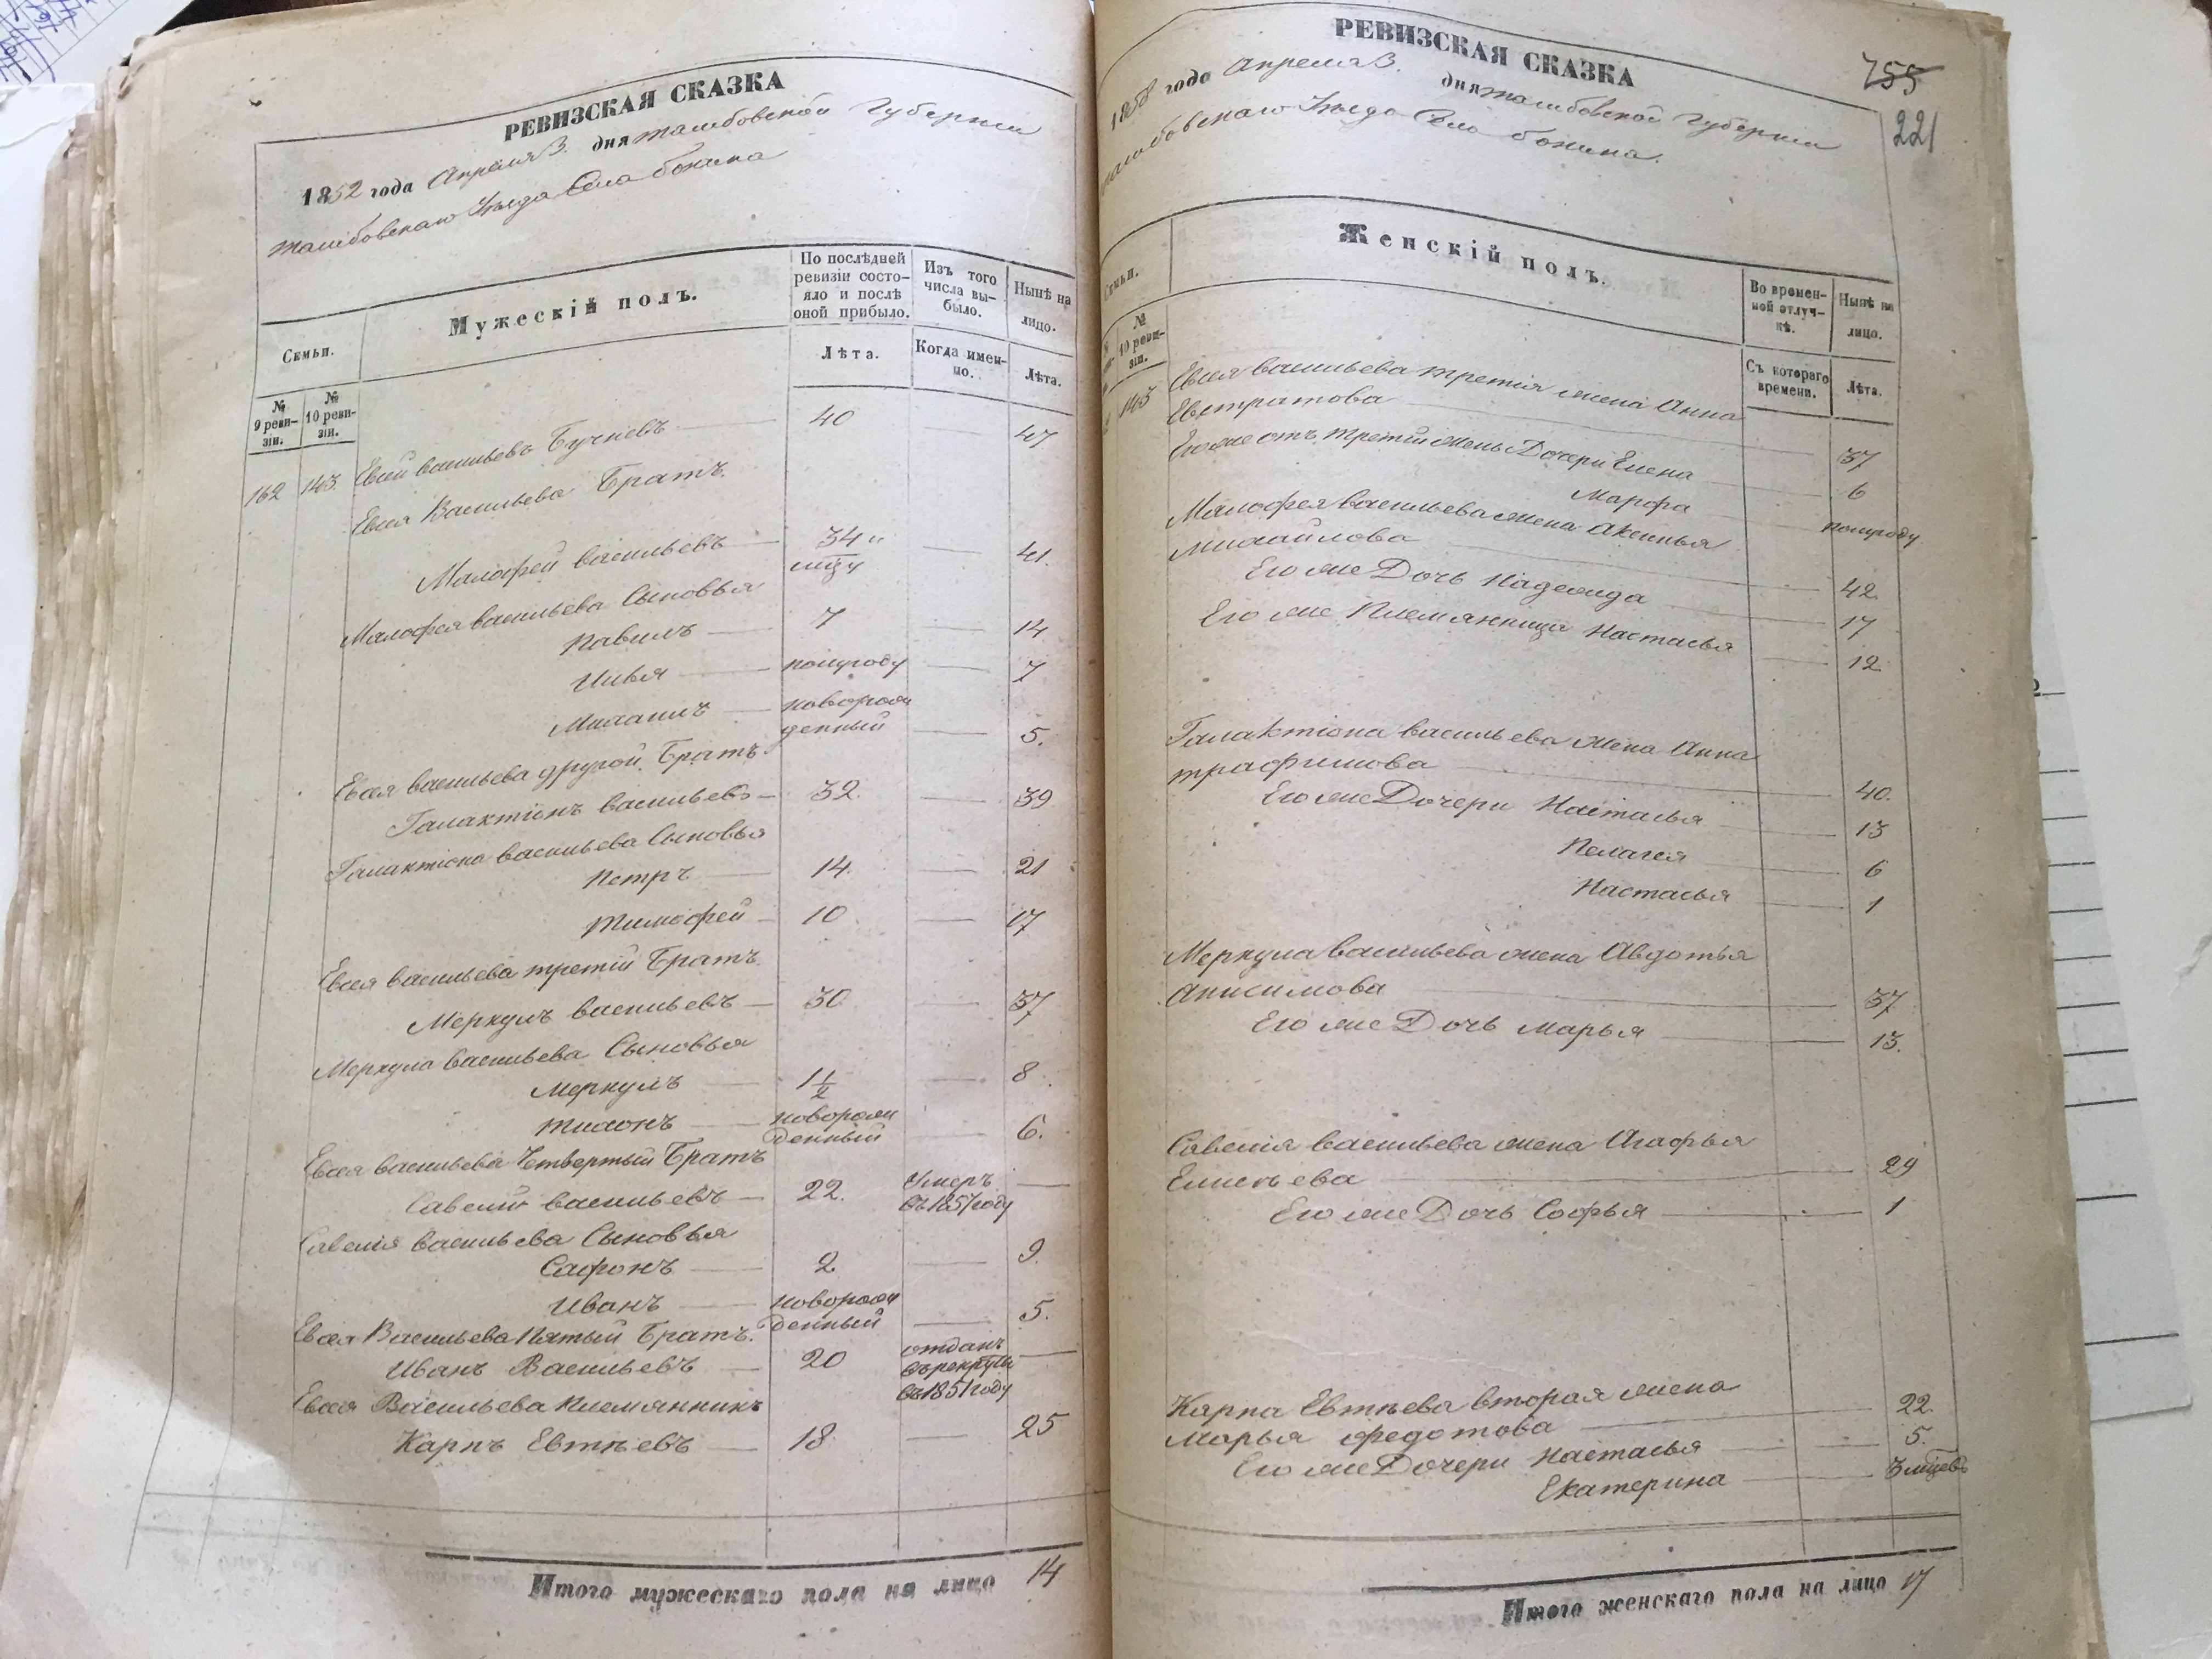 РЕВИЗСКАЯ СКАЗКА
1852 года Апреля 3. дня тамбовской Губернии
тамбовскаго Уѣзда Села бокина
Семьи.
Мужескій полъ.
По послѣдней ревизіи состо-
яло и послѣ
оной прибыло.
Изъ того
числа вы-
было.
Нынѣ на
лицо.
№ 9 реви-
зіи.
№ 10 реви-
зіи.
Лѣта.
Когда имен-
но.
Лѣта.
162 143. Евсей васильевъ Бучневъ 40 47
Евсея Васильева Братъ.
Малофей васильевъ 34 и 41.
Малофея васильева Сыновья
Павилъ 7 14
Илья полугоду 7
Михаилъ новорож
денный 5.
Евсея васильева другой Братъ.
Галактіонъ васильевъ 32. 39
Галактіона васильева Сыновья
Петръ 14. 21
Тимофей 10 17
Евсея васильева третій Братъ.
Меркулъ васильевъ 30 37
Меркула васильева Сыновья
Меркулъ 1 1/2 8.
Тихонъ новорож
денный 6.
Евсея васильева Четвертый Братъ
Савелій васильевъ 22. Умеръ
въ 1857 году
Савелія васильева Сыновья
Сафонъ 2. 9.
Иванъ новорож
денный 5.
Евсея Васильева Пятый Братъ.
Иванъ Васильевъ 20 отданъ
въ рекруты
въ 1851 году
Евсея Васильева Племянникъ
Карпъ Евтѣевъ 18 25
Итого мужескаго пола на лицо 14
РЕВИЗСКАЯ СКАЗКА
755
221
1858 года Апреля 3. дня тамбовской Губернии
тамбовскаго Уѣзда Села бокина.
Семьи.
Женскій полъ.
Во времен-
ной отлуч-
кѣ.
Нынѣ на
лицо.
№
10 реви-
зіи.
Съ котораго
времени.
Лѣта.
143 Евсея васильева третія жена Анна
Евстратова 37
Его же отъ третій жены Дочери Елена 6
Марфа полугоду
Малофея васильева жена Аксинья
михайлова 42.
Его же Дочь Надежда 17
Его же Племянница Настасья 12.
Галактіона васильева жена Анна
трафимова 40.
Его же Дочери Настасья 13
Пелагея 6
Настасья 1
Меркула васильева жена Авдотья
Анисимова 37
Его же Дочь Марья 13.
Савелія васильева жена Агафья
Елисѣева 29
Его же Дочь Софья 1
Карпа Евтѣева вторая жена
Марья федотова 22.
Его же Дочери Настасья 5.
Екатерина 3 мѣсяцевъ
Итого женскаго пола на лицо 17